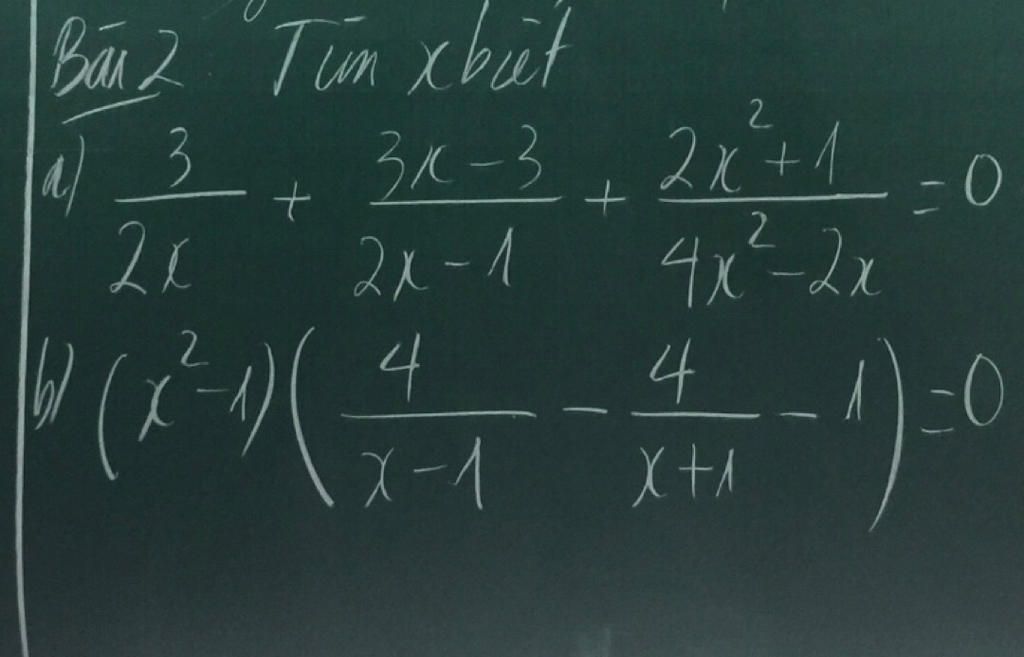 Bài 2 Tìm x biết
a) \frac{3}{2x} + \frac{3x-3}{2x-1} + \frac{2x^2+1}{4x^2-2x} = 0
b) (x^2-1)(\frac{4}{x-1} - \frac{4}{x+1} - 1) = 0